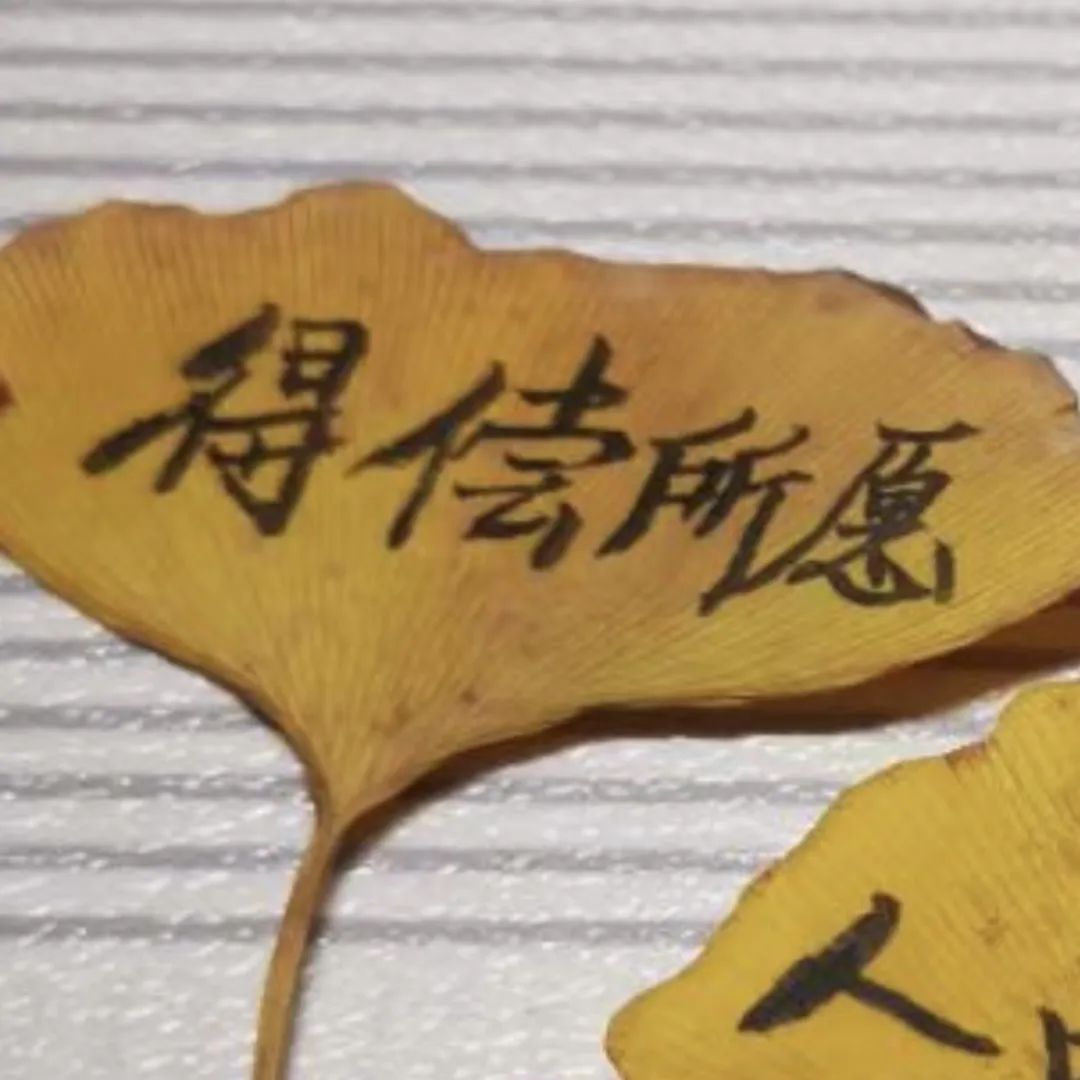 得偿所愿
人